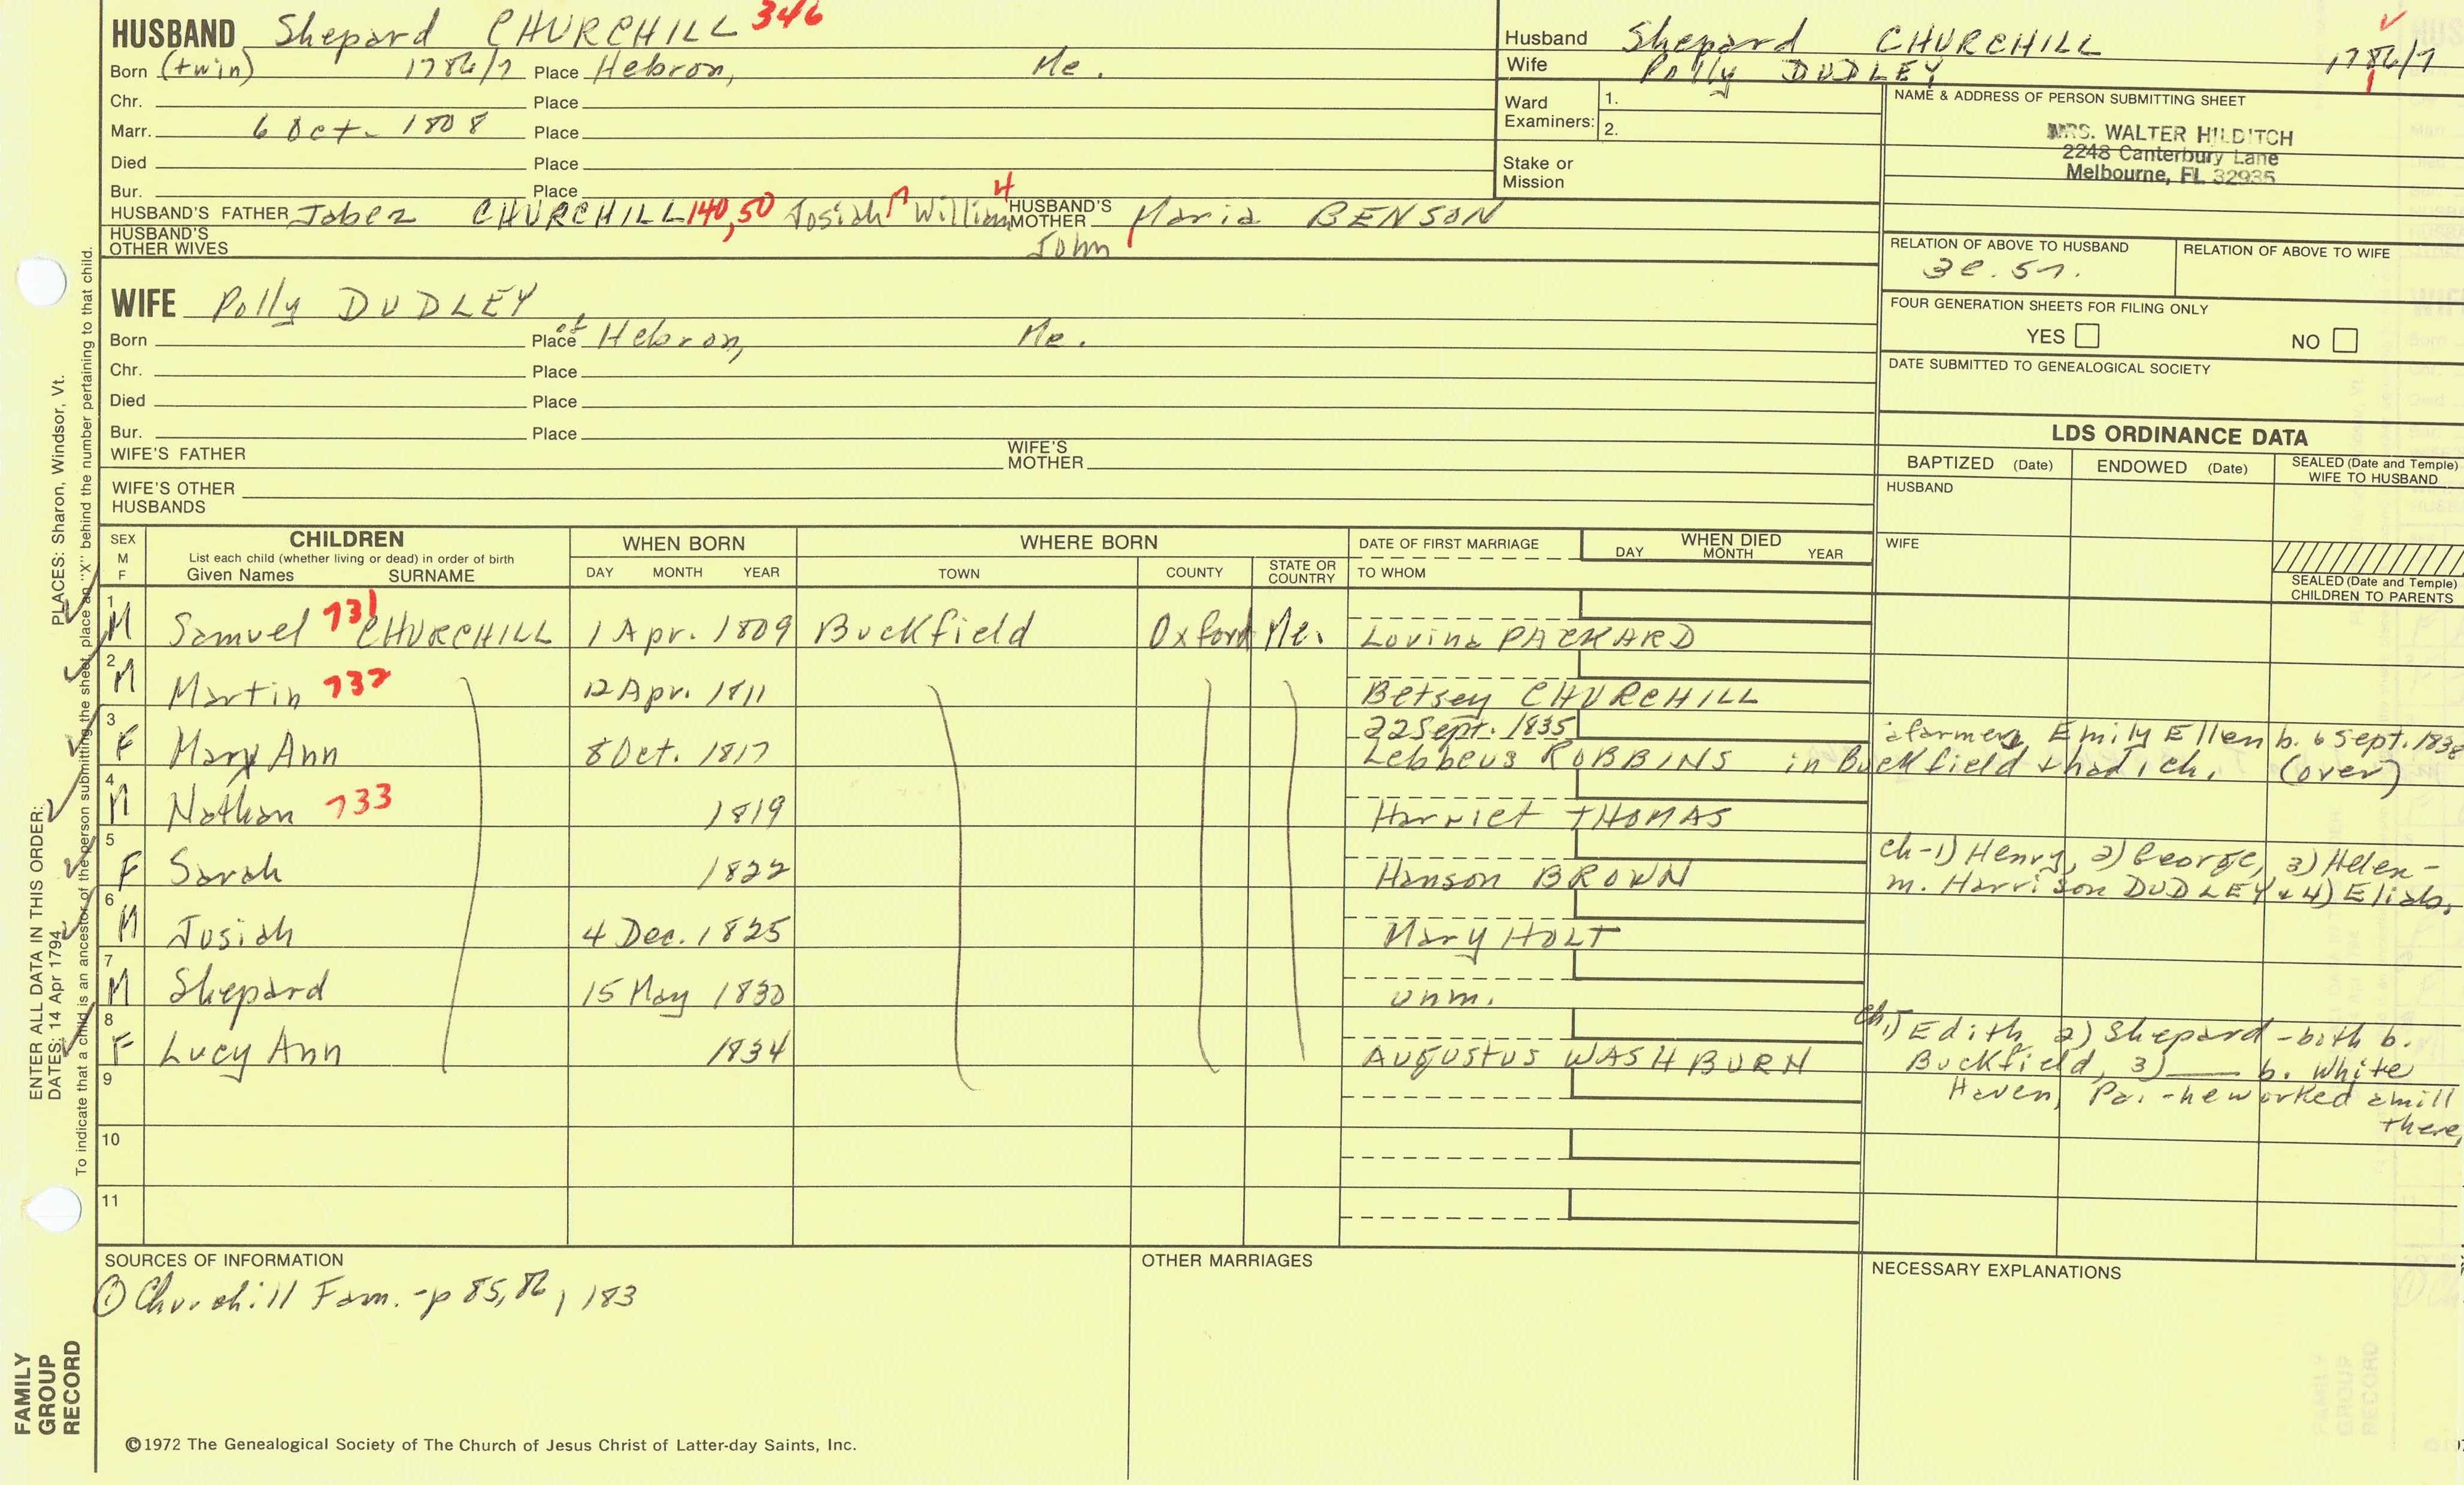 HUSBAND Shepard CHURCHILL 346
Born (twin) 1786/7 Place Hebron, Me.
Chr. Place
Marr. 6 Oct. 1808 Place
Died Place
Bur. Place
HUSBAND'S FATHER Jabez CHURCHILL 140,50 Josiah William 4 John HUSBAND'S MOTHER Maria BENSON
HUSBAND'S OTHER WIVES
Husband Shepard CHURCHILL 1786/7
Wife Polly DUDLEY
Ward Examiners: 1.
2.
Stake or Mission
NAME & ADDRESS OF PERSON SUBMITTING SHEET
MRS. WALTER HILDITCH
2248 Canterbury Lane
Melbourne, FL 32935
RELATION OF ABOVE TO HUSBAND
RELATION OF ABOVE TO WIFE
FOUR GENERATION SHEETS FOR FILING ONLY
YES NO
DATE SUBMITTED TO GENEALOGICAL SOCIETY
WIFE Polly DUDLEY
Born Place of Hebron, Me.
Chr. Place
Died Place
Bur. Place
WIFE'S FATHER WIFE'S MOTHER
WIFE'S OTHER HUSBANDS
LDS ORDINANCE DATA
BAPTIZED (Date) ENDOWED (Date) SEALED (Date and Temple) WIFE TO HUSBAND
HUSBAND
WIFE
SEALED (Date and Temple) CHILDREN TO PARENTS
SEX M F
CHILDREN
List each child (whether living or dead) in order of birth
Given Names SURNAME
WHEN BORN
DAY MONTH YEAR
WHERE BORN
TOWN COUNTY STATE OR COUNTRY
DATE OF FIRST MARRIAGE
TO WHOM
WHEN DIED
DAY MONTH YEAR
1 M Samuel 731 CHURCHILL 1 Apr. 1809 Buckfield Oxford Me. Lovina PACKARD
2 M Martin 732 12 Apr. 1811 Betsey CHURCHILL
3 F Mary Ann 8 Oct. 1817 22 Sept. 1835
Lebbeus ROBBINS
a farmer, Emily Ellen b. 6 Sept. 1838
in Buckfield + had 1 ch. (over)
4 M Nathan 733 1819 Harriet THOMAS
5 F Sarah 1822 Hanson BROWN
ch-1) Henry, 2) George, 3) Helen-
m. Harrison DUDLEY & 4) Eliab.
6 M Josiah 4 Dec. 1825 Mary HOLT
7 M Shepard 15 May 1830 unm.
8 F Lucy Ann 1834 Augustus WASHBURN
ch 1) Edith 2) Shepard - both b.
Buckfield, 3) ___ b. White
Haven, Pa. - he worked a mill
there
9
10
11
SOURCES OF INFORMATION
① Churchill Fam. - p 85, 86, 183
OTHER MARRIAGES
NECESSARY EXPLANATIONS
©1972 The Genealogical Society of The Church of Jesus Christ of Latter-day Saints, Inc.
FAMILY
GROUP
RECORD
ENTER ALL DATA IN THIS ORDER:
DATES: 14 Apr 1794 PLACES: Sharon, Windsor, Vt.
To indicate that a child is an ancestor of the person submitting the sheet, place an "X" behind the number pertaining to that child.